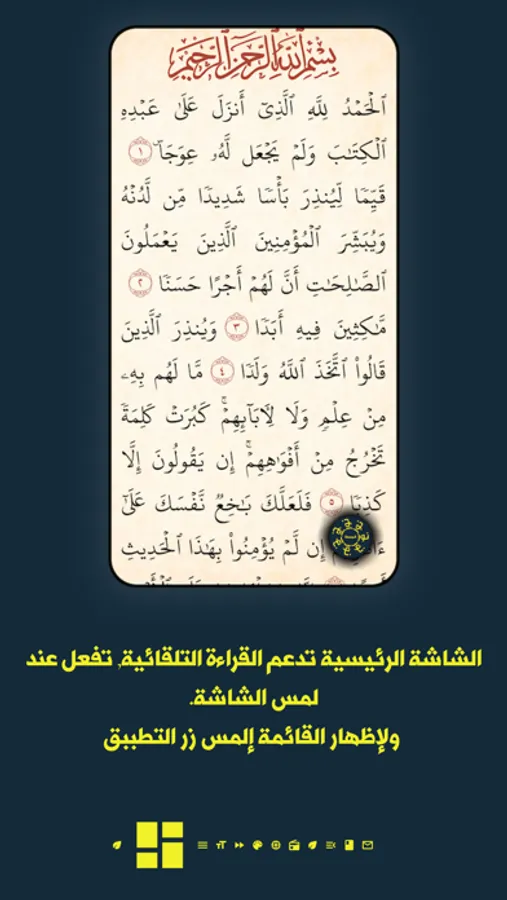 بِسْمِ ٱللَّهِ ٱلرَّحْمَٰنِ ٱلرَّحِيمِ
ٱلْحَمْدُ لِلَّهِ ٱلَّذِىٓ أَنزَلَ عَلَىٰ عَبْدِهِ
ٱلْكِتَٰبَ وَلَمْ يَجْعَل لَّهُۥ عِوَجَاۜ ١
قَيِّمًا لِّيُنذِرَ بَأْسًا شَدِيدًا مِّن لَّدُنْهُ
وَيُبَشِّرَ ٱلْمُؤْمِنِينَ ٱلَّذِينَ يَعْمَلُونَ
ٱلصَّٰلِحَٰتِ أَنَّ لَهُمْ أَجْرًا حَسَنًا ٢
مَّٰكِثِينَ فِيهِ أَبَدًا ٣ وَيُنذِرَ ٱلَّذِينَ
قَالُوا۟ ٱتَّخَذَ ٱللَّهُ وَلَدًا ٤ مَّا لَهُم بِهِۦ
مِنْ عِلْمٍ وَلَا لِءَابَآئِهِمْ ۚ كَبُرَتْ كَلِمَةً
تَخْرُجُ مِنْ أَفْوَٰهِهِمْ ۚ إِن يَقُولُونَ إِلَّا
كَذِبًا ٥ فَلَعَلَّكَ بَٰخِعٌ نَّفْسَكَ عَلَىٰٓ
إِن لَّمْ يُؤْمِنُوا۟ بِهَٰذَا ٱلْحَدِيثِ
الشاشة الرئيسية تدعم القراءة التلقائية, تفعل عند
لمس الشاشة.
ولإظهار القائمة إلمس زر التطبيق